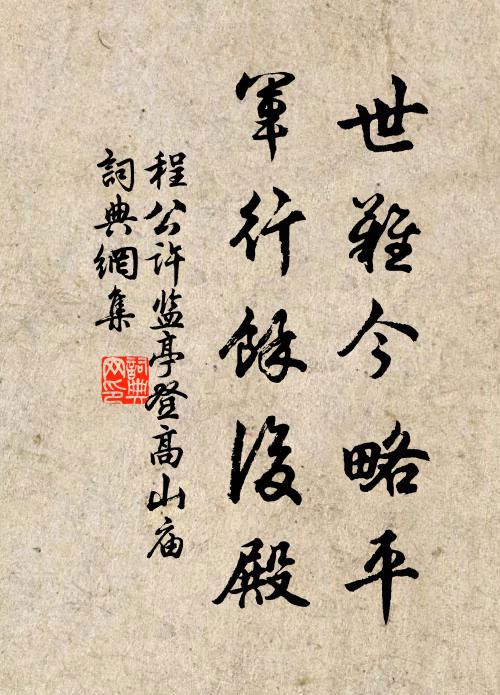 世難今略平
軍行餘後殿
程公许监亭登高山庙
詞典網集
詞典網印